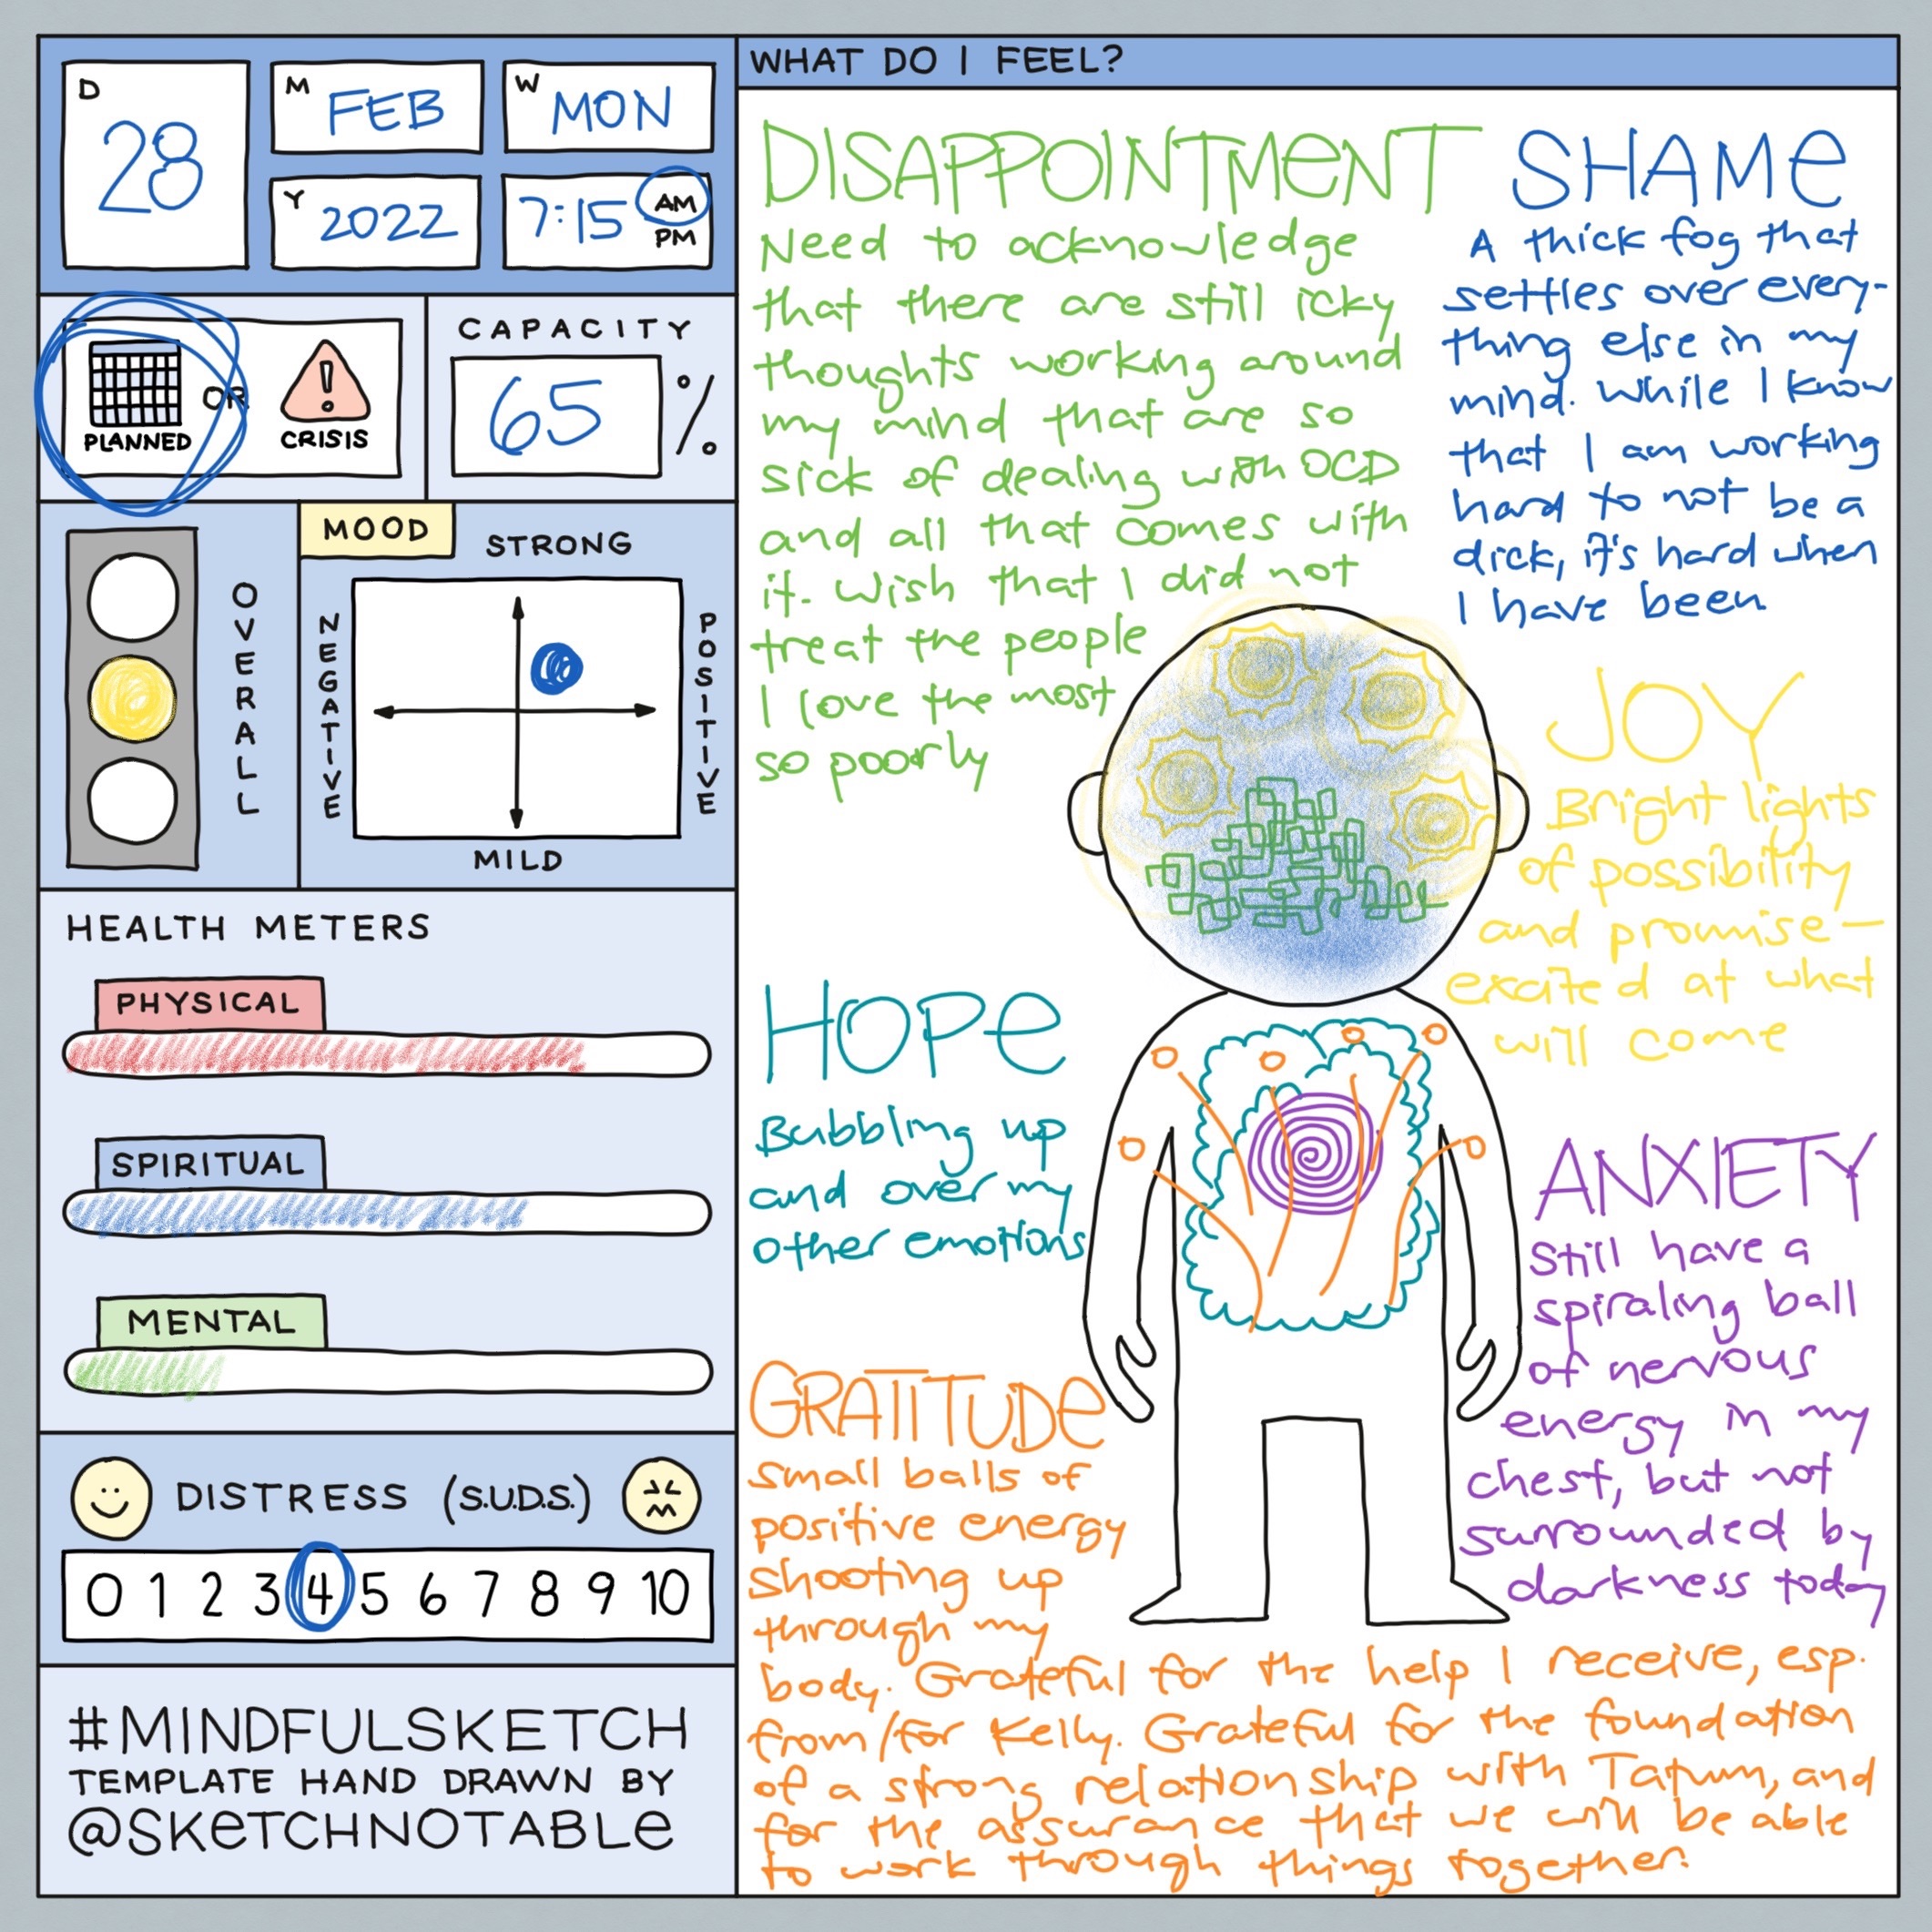 D
28
M
FEB
W
MON
Y
2022
7:15 AM
PM
PLANNED
OR
CRISIS
CAPACITY
65 %
OVERALL
MOOD
STRONG
NEGATIVE
POSITIVE
MILD
HEALTH METERS
PHYSICAL
SPIRITUAL
MENTAL
DISTRESS (S.U.D.S.)
0 1 2 3 4 5 6 7 8 9 10
#MINDFULSKETCH
TEMPLATE HAND DRAWN BY
@SKETCHNOTABLE
WHAT DO I FEEL?
DISAPPOINTMENT
Need to acknowledge
that there are still icky
thoughts working around
my mind that are so
sick of dealing with OCD
and all that comes with
it. Wish that I did not
treat the people
I love the most
so poorly
SHAME
A thick fog that
settles over every-
thing else in my
mind. While I know
that I am working
hard to not be a
dick, it's hard when
I have been
JOY
Bright lights
of possibility
and promise—
excited at what
will come
HOPE
Bubbling up
and over my
other emotions
ANXIETY
Still have a
spiraling ball
of nervous
energy in my
chest, but not
surrounded by
darkness today
GRATITUDE
Small balls of
positive energy
shooting up
through my
body. Grateful for the help I receive, esp.
from/for Kelly. Grateful for the foundation
of a strong relationship with Tatum, and
for the assurance that we will be able
to work through things together.